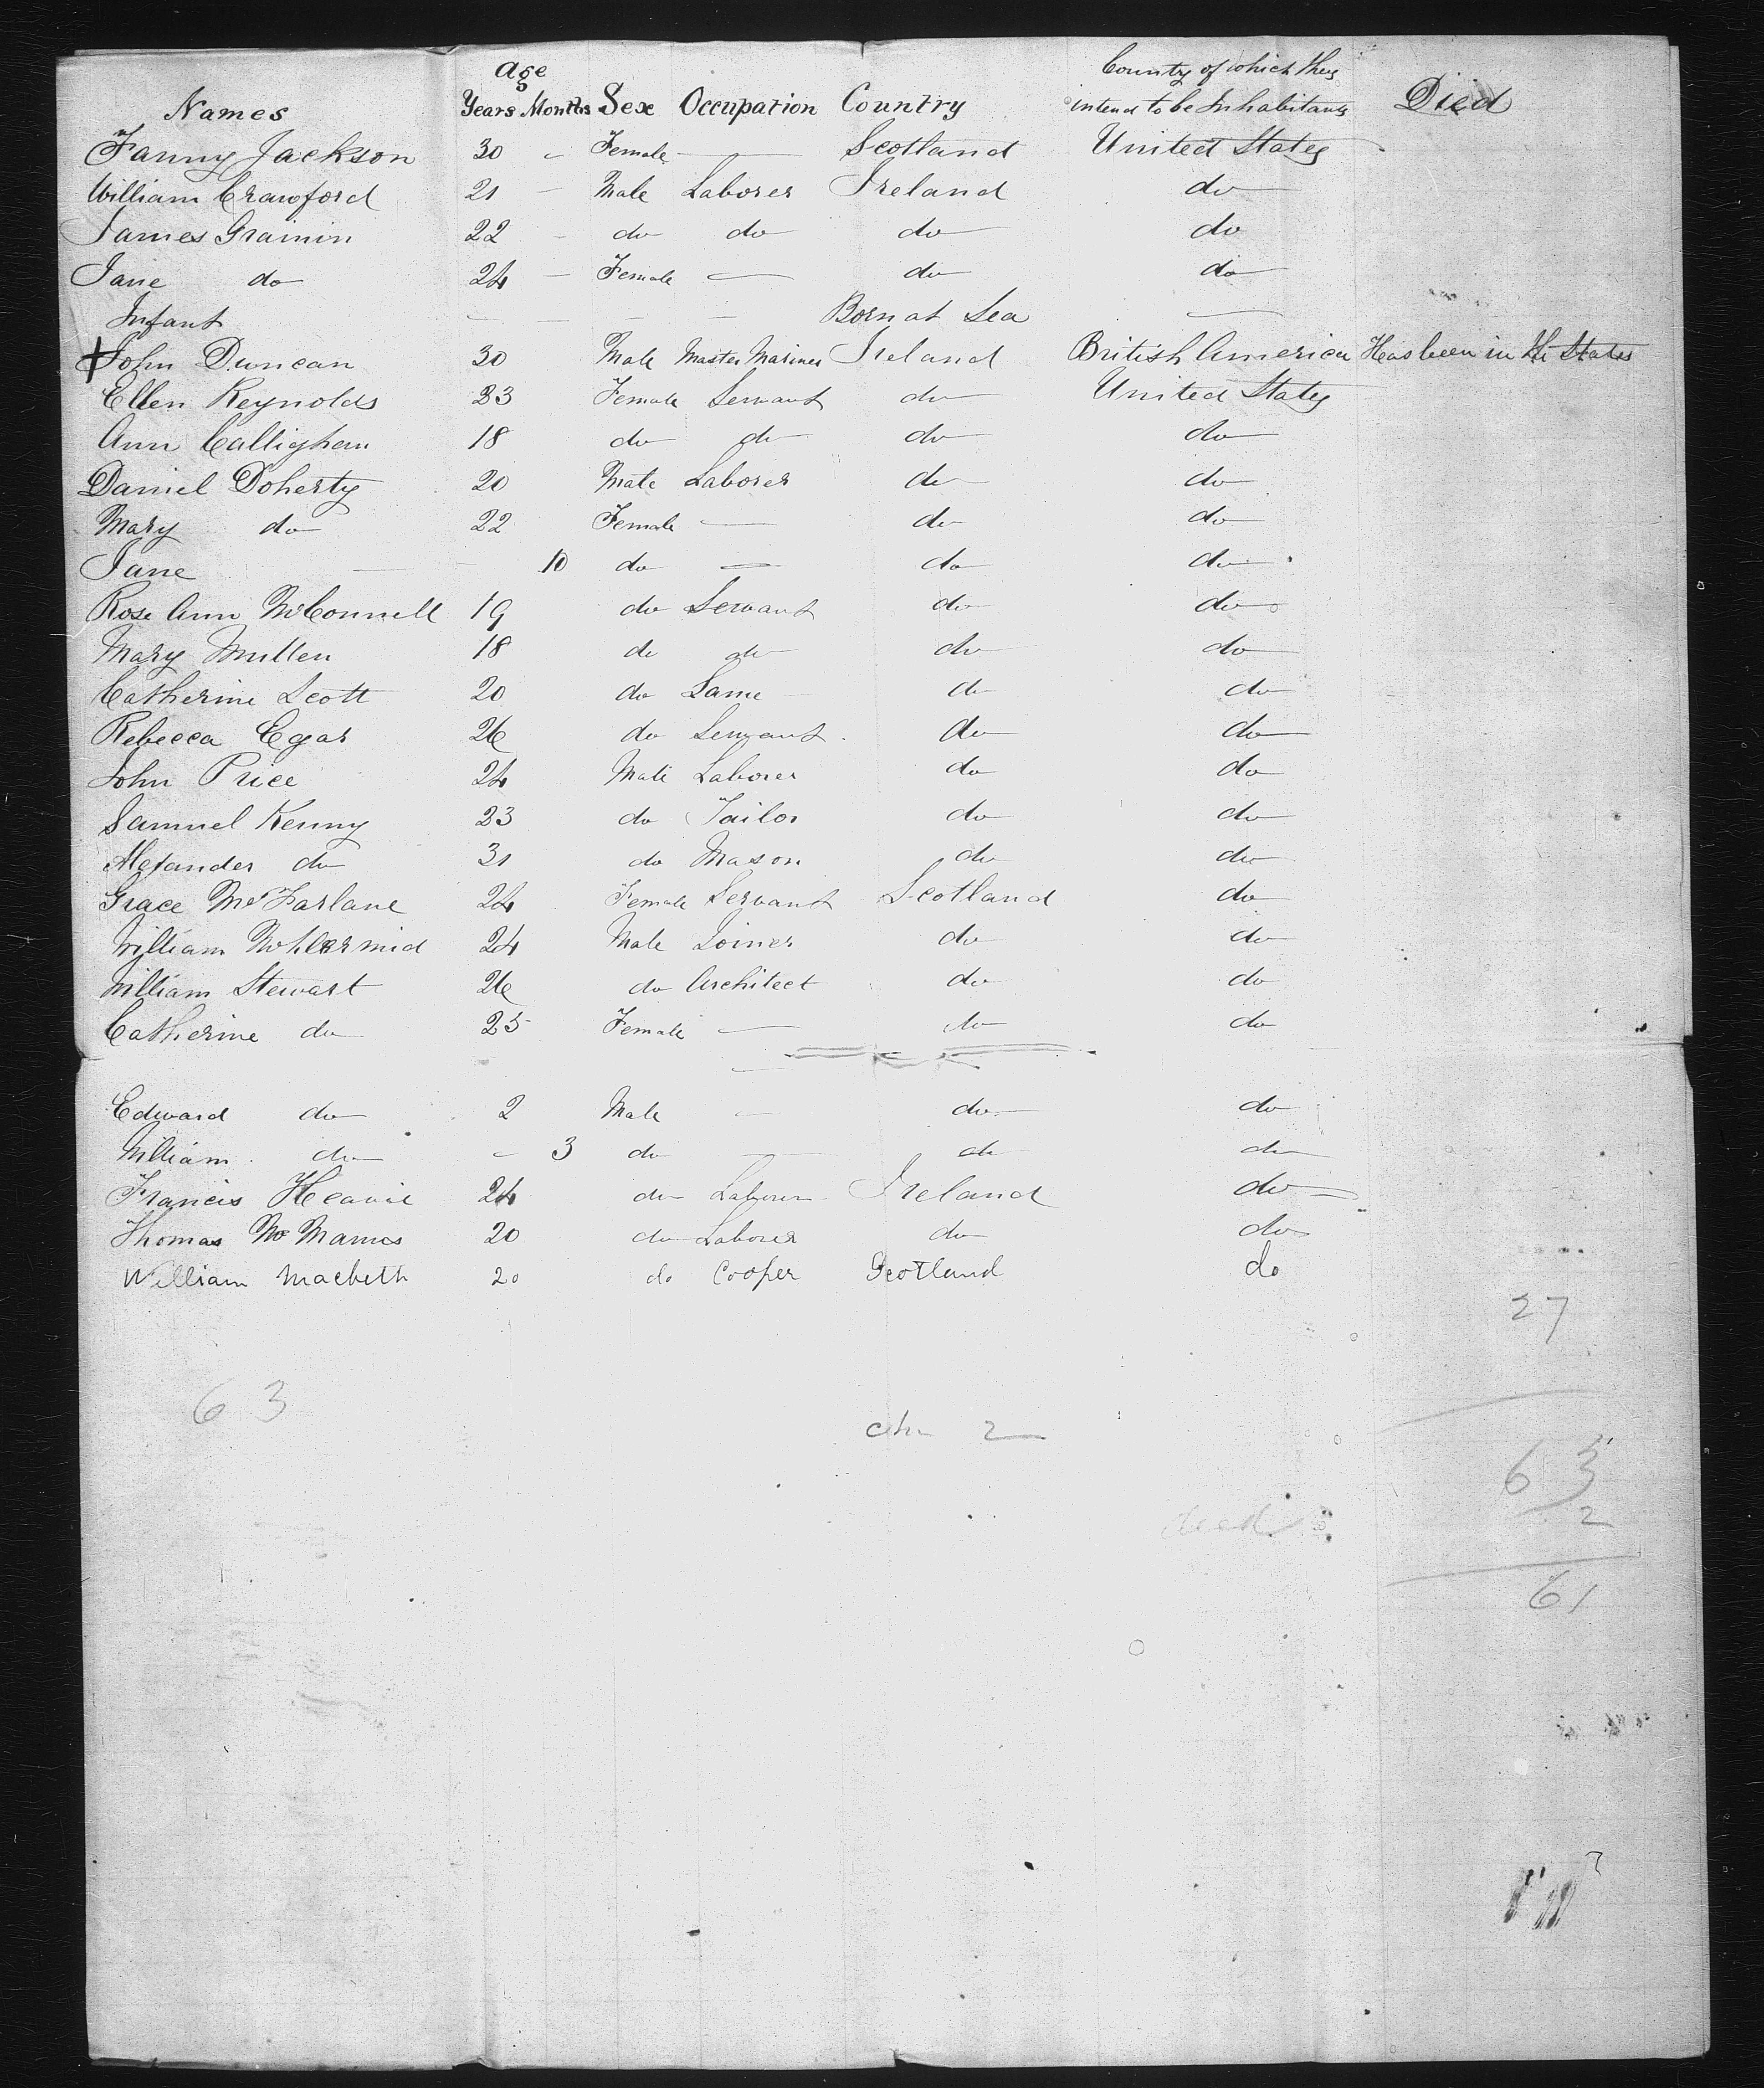 Names age Years Months Sex Occupation Country County of which they intend to be Inhabitants Died
Fanny Jackson 30 - Female — Scotland United States
William Crawford 21 - Male Laborer Ireland do
James Grainin 22 - do do do do
Jane do 24 - Female — do do
Infant - - - - Born at Sea —
+ John Duncan 30 Male Master Mariner Ireland British America Has been in the States
Ellen Reynolds 23 Female Servant do United States
Ann Callighan 18 do do do do
Daniel Doherty 20 Male Laborer do do
Mary do 22 Female — do do
Jane — - 10 do — do do
Rose Ann McConnell 19 do Servant do do
Mary Mullen 18 do do do do
Catherine Scott 20 do Same do do
Rebecca Egar 26 do Servant do do
John Price 24 Male Laborer do do
Samuel Kenny 23 do Tailor do do
Alexander do 31 do Mason do do
Grace McFarlane 24 Female Servant Scotland do
William 24 Male Joiner do do
William Stewart 26 do Architect do do
Catherine do 25 Female — do do
Edward do 2 Male - do do
William do - 3 do — do do
Francis 24 do Laborer Ireland do
Thomas McManus 20 do Laborer do do
William Macbeth 20 do Cooper Scotland do
27
63
ch 2
63
2
died
61